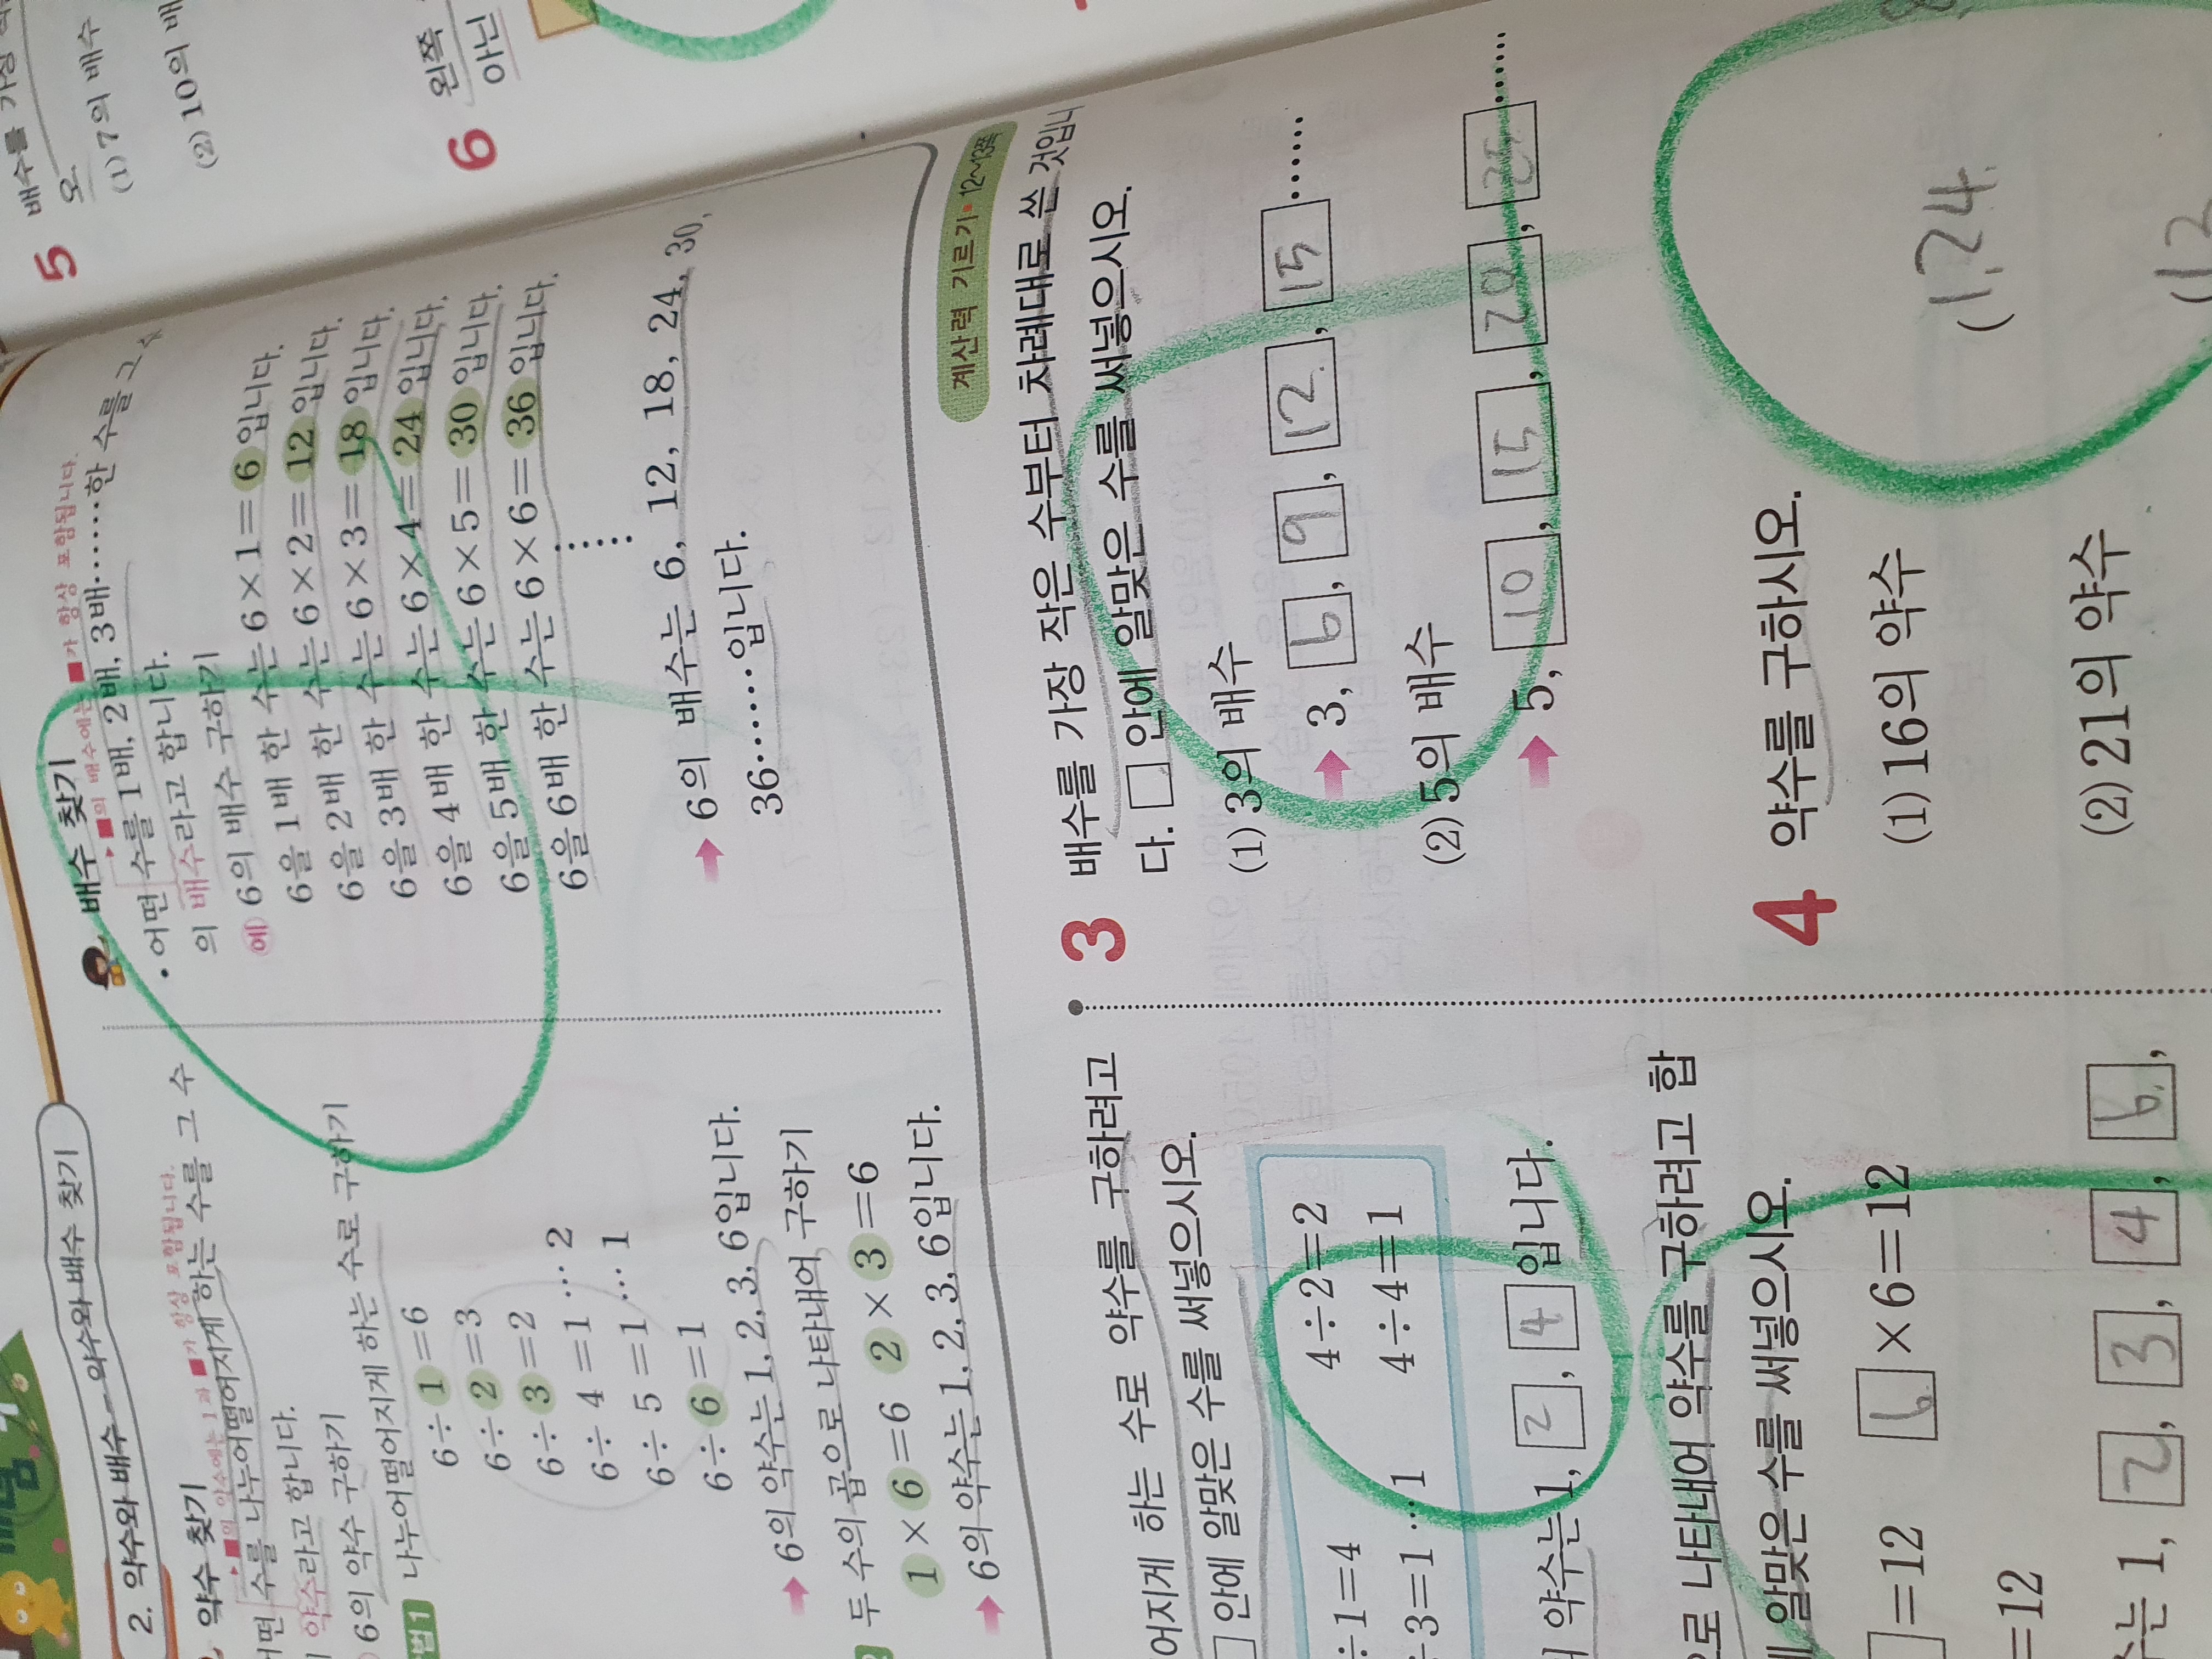 2. 약수와 배수 - 약수와 배수 찾기
약수 찾기
■의 약수에는 1과 ■가 항상 포함됩니다.
수를 나누어떨어지게 하는 수를 그 수
약수라고 합니다.
6의 약수 구하기
법1 나누어떨어지게 하는 수로 구하기
6÷1=6
6÷2=3
6÷3=2
6÷4=1…2
6÷5=1…1
6÷6=1
➡ 6의 약수는 1, 2, 3, 6입니다.
두 수의 곱으로 나타내어 구하기
1×6=6 2×3=6
➡ 6의 약수는 1, 2, 3, 6입니다.
배수 찾기
■의 배수에는 ■가 항상 포함됩니다.
• 어떤 수를 1배, 2배, 3배……한 수를 그
의 배수라고 합니다.
예) 6의 배수 구하기
6을 1배 한 수는 6×1=6입니다.
6을 2배 한 수는 6×2=12입니다.
6을 3배 한 수는 6×3=18입니다.
6을 4배 한 수는 6×4=24입니다.
6을 5배 한 수는 6×5=30입니다.
6을 6배 한 수는 6×6=36입니다.
➡ 6의 배수는 6, 12, 18, 24, 30,
36……입니다.
계산력 기르기 • 12~13쪽
어지게 하는 수로 약수를 구하려고
□ 안에 알맞은 수를 써넣으시오.
÷1=4 4÷2=2
÷3=1…1 4÷4=1
약수는 1, 2, 4입니다.
으로 나타내어 약수를 구하려고 합
알맞은 수를 써넣으시오.
=12 6×6=12
=12
는 1, 2, 3, 4, 6,
3 배수를 가장 작은 수부터 차례대로 쓴 것입니
다. □ 안에 알맞은 수를 써넣으시오.
(1) 3의 배수
➡ 3, 6, 9, 12, 15……
(2) 5의 배수
➡ 5, 10, 15, 20, 25……
4 약수를 구하시오.
(1) 16의 약수
(1.24.
(2) 21의 약수
(12
5 배수를 가장
오.
(1) 7의 배수
(2) 10의 배
6 왼쪽
아닌